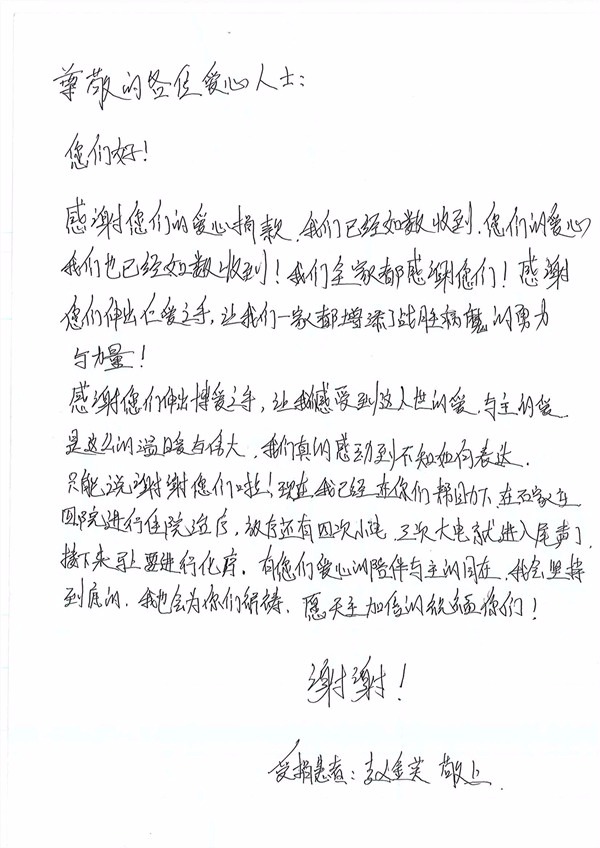 尊敬的各位爱心人士：
您们好！
感谢您们的爱心捐款，我们已经如数收到，您们的爱心
我们也已经如数收到！我们全家都感谢您们！感谢
您们伸出仁爱之手，让我们一家都增添了战胜病魔的勇力
与力量！
感谢您们伸出博爱之手，让我感受到这人世的爱，与主的爱
是这么的温暖与伟大，我们真的感动到不知如何表达，
只能说谢谢您们啦！现在我已经在你们帮助下，在石家庄
四院进行住院治疗，放疗还有四次小电，三次大电就进入尾声了，
接下来马上要进行化疗，有您们爱心的陪伴与主的同在，我会坚持
到底的，我也会为你们祈祷，愿天主加倍的祝福你们！
谢谢！
受捐患者：赵金芙 敬上